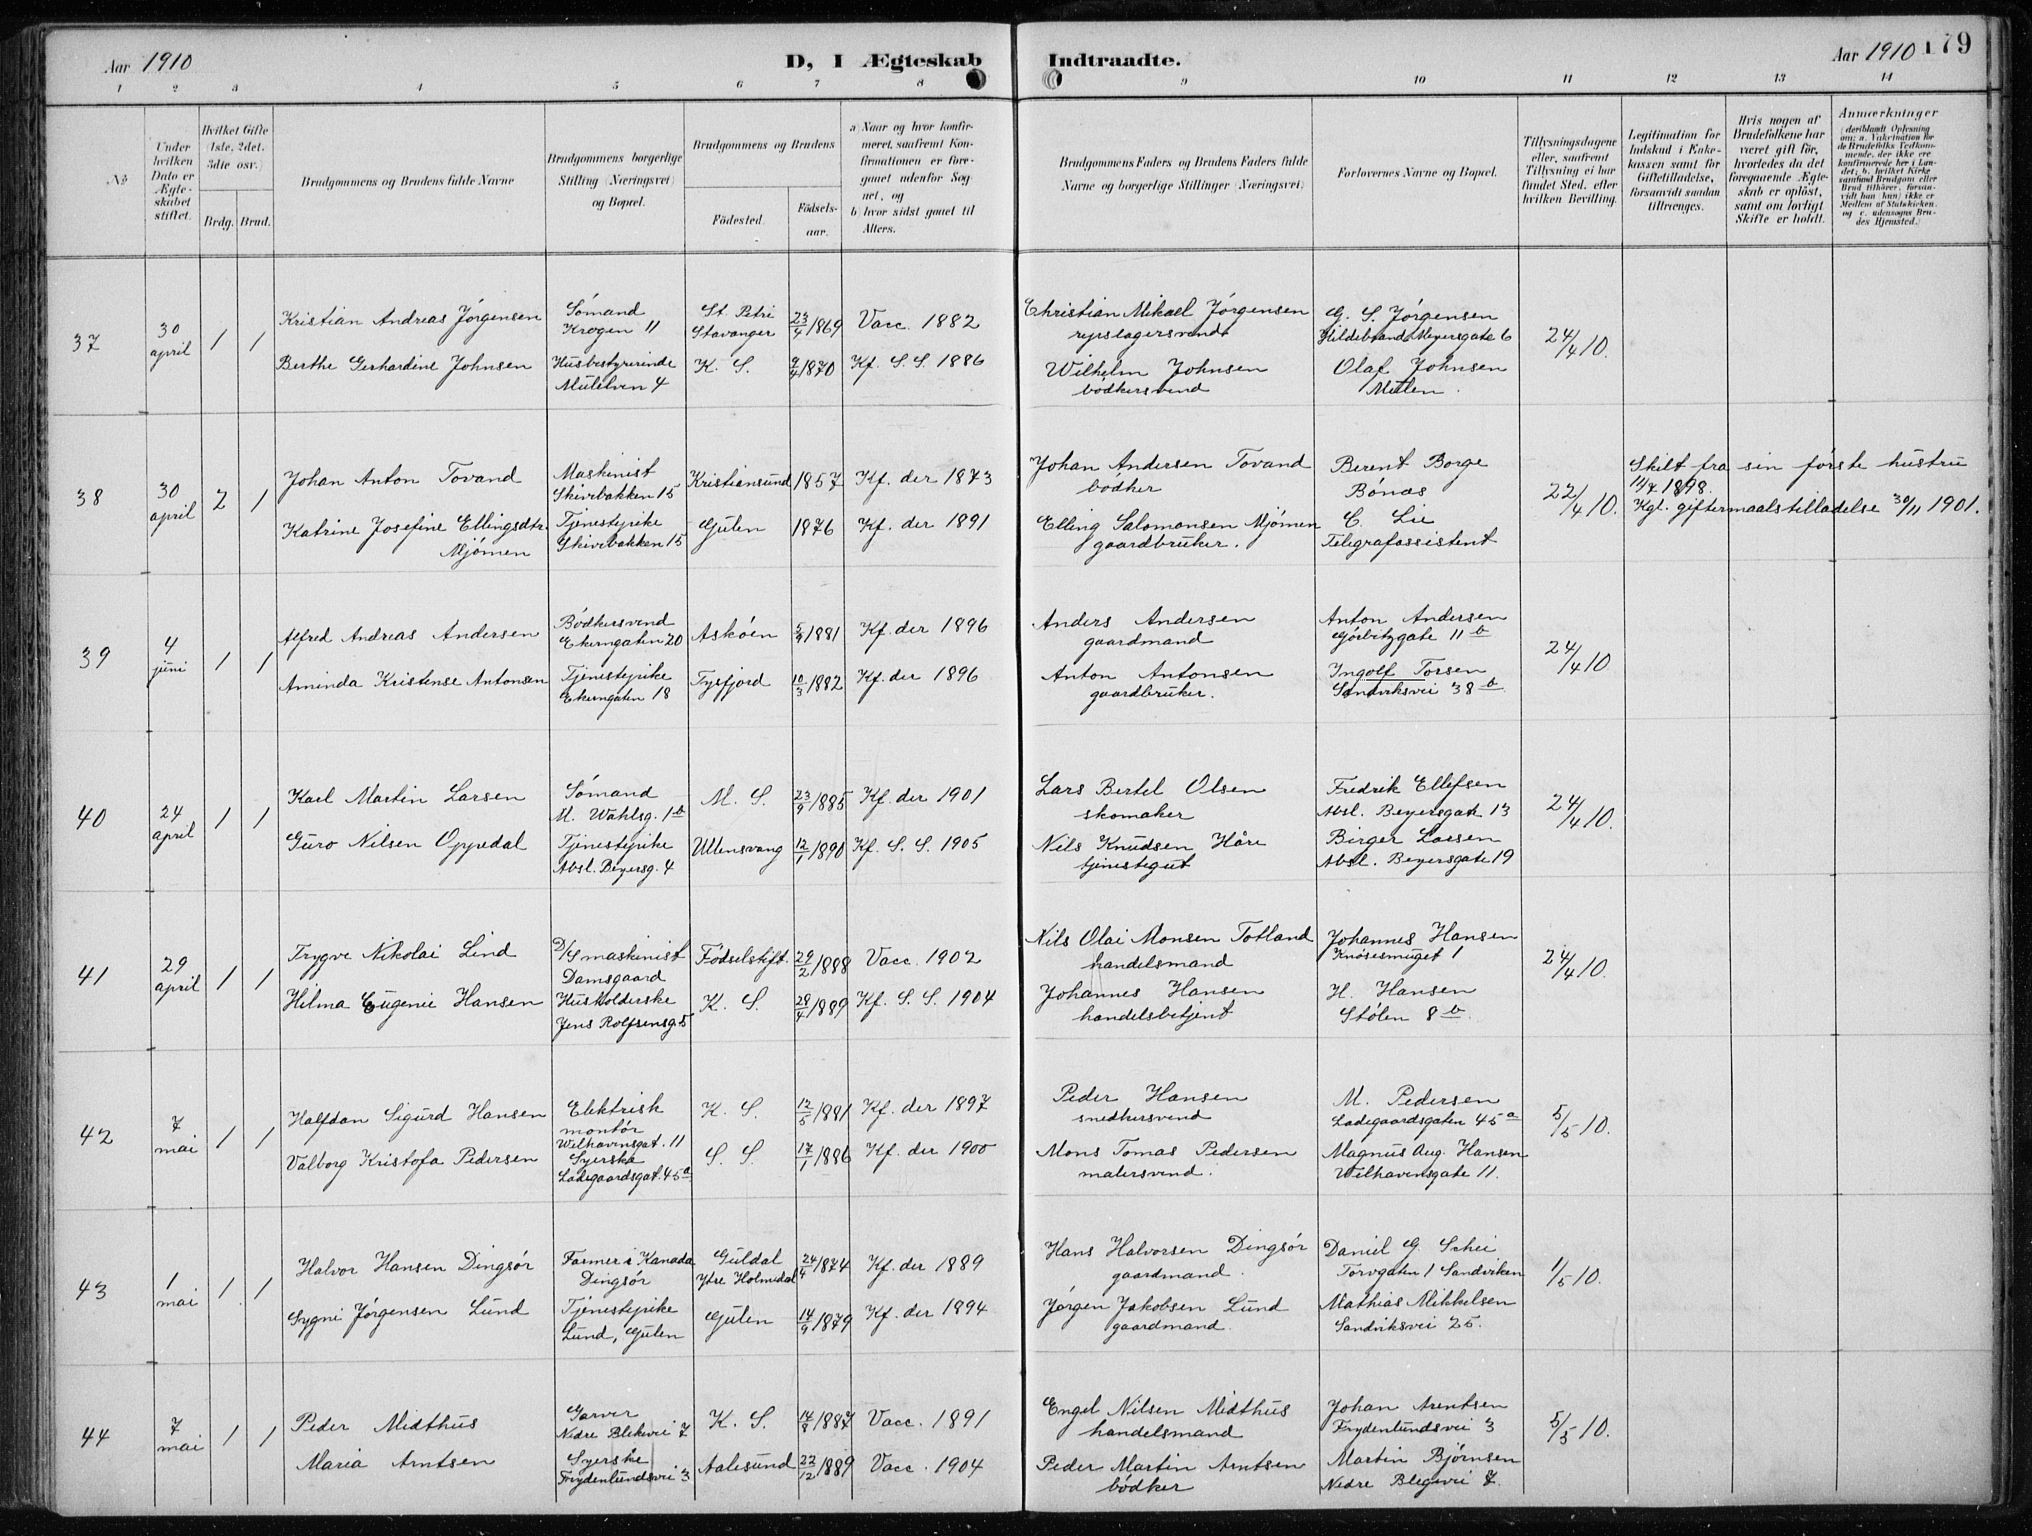 Aar 1910
D, I Ægteskab
Indtraadte.
Aar 1910
179
1 2 3 4 5 6 7 8
9 10 11 12 13 14
No
Under hvilken Dato er Ægteskabet stiftet.
Hvilket Gifte (1ste, 2det, 3dte osv.)
Brdg. Brud.
Brudgommens og Brudens fulde Navne
Brudgommens borgerlige Stilling (Næringsvei) og Bopæl.
Brudgommens og Brudens
Födested.
Födsels-aar.
a) Naar og hvor konfirmeret, saafremt Konfirmationen er foregaaet udenfor Sognet, og
b) hvor sidst gaaet til Alters.
Brudgommens Faders og Brudens Faders fulde Navne og borgerlige Stillinger (Næringsvei)
Forlovernes Navne og Bopæl.
Tillysningsdagene eller, saafremt Tillysning ei har fundet Sted, efter hvilken Bevilling.
Legitimation for Indskud i Enkekassen samt for Giftetilladelse, forsaavidt saadan tiltrænges.
Hvis nogen af Brudefolkene har været gift för, hvorledes da det foregaaende Ægteskab er oplöst, samt om lovligt Skifte er holdt.
Anmærkninger
37
30 april
1 1
Kristian Andreas Jørgensen
Sømand
Krogen 11
St. Petri
Stavanger
23/4 1869
Vacc. 1882
Christian Mikael Jørgensen
repslagersvend
G. S. Jørgensen
Hildebrand Meyersgate 6
24/4 10.
Berthe Gerhardine Johnsen
Husbestyrerinde
Mulelven 4
K. S.
9/4 1870
Kf. S. S. 1886
Wilhelm Johnsen
bødkersvend
Olaf Johnsen
Mulen.
38
30 april
2 1
Johan Anton Tovand
Maskinist
Skivebakken 15
Kristiansund
1857
Kf. der 1873
Johan Andersen Tovand
bødker
Berent Borge
Bønæs
22/4 10.
Skilt fra sin første hustru
11/7 1898.
Kgl. giftermaalstilladelse 30/11 1901.
Katrine Josefine Ellingsdtr.
Mjømen
Tjenestepike
Skivebakken 15
Gulen
1876
Kf. der 1891
Elling Salomonsen Mjømen
gaardbruker.
C. Lie
Telegrafassistent
39
4 juni
1 1
Alfred Andreas Andersen
Bødkersvend
Ekerngaten 20
Askøen
5/9 1881
Kf. der 1896
Anders Andersen
gaardmand
Anton Andersen
Gørbitzgate 11 b
24/4 10
Aminda Kristense Antonsen
Tjenestepike
Ekerngaten 18
Tysfjord
10/3 1882
Kf. der 1896
Anton Antonsen
gaardbruker.
Ingolf Torsen
Sandviksvei 38 b.
40
24 april
1 1
Karl Martin Larsen
Sømand
M. Wahlsg. 1 b
M. S.
23/9 1885
Kf. der 1901
Lars Bertel Olsen
skomaker
Fredrik Ellefsen
Absl. Beyersgate 13
24/4 10.
Guro Nilsen Oppedal
Tjenestepike
Absl. Beyersg. 4
Ullensvang
12/1 1890
Kf. S. S. 1905
Nils Knudsen Håre
tjenestegut
Birger Larsen
Absl. Beyersgate 19
41
29 april
1 1
Trygve Nikolai Lind
D/S maskinist
Damsgaard
Fødselstift.
29/2 1888
Vacc. 1902
Nils Olai Monsen Totland
handelsmand
Johannes Hansen
Knøsesmuget 1
24/4 10.
Hilma Eugenie Hansen
Husholderske
Jens Rolfsensg. 5
K. S.
28/4 1889
Kf. S. S. 1904
Johannes Hansen
handelsbetjent
H. Hansen
Stølen 8 b.
42
7 mai
1 1
Halfdan Sigurd Hansen
Elektrisk
montør
Welhavensgat. 11
K. S.
12/5 1881
Kf. der 1897
Peder Hansen
snedkersvend
M. Pedersen
Ladegaardsgaten 45 a
5/5 10.
Valborg Kristofa Pedersen
Syerske
Ladegaardsgat. 45 a
S. S.
17/1 1886
Kf. der 1900
Mons Tomas Pedersen
malersvend.
Magnus Aug. Hansen
Welhavensgate 11.
43
1 mai
1 1
Halvor Hansen Dingsør
Farmer i Kanada
Dingsør
Guldal
Ytre Holmedal
24/4 1874
Kf. der 1889
Hans Halvorsen Dingsør
gaardmand.
Daniel G. Schei
Torvgaten 1 Sandviken
1/5 10.
Sygni Jørgensen Lund
Tjenestepike
Lund, Gulen
Gulen
14/9 1879
Kf. der 1894
Jørgen Jakobsen Lund
gaardmand.
Mathias Mikkelsen
Sandviksvei 25.
44
7 mai
1 1
Peder Midthus
Garver
Nedre Blekevei 7
K. S.
14/8 1887
Vacc. 1891
Engel Nilsen Midthus
handelsmand
Johan Arentsen
Frydenlundsvei 3
5/5 10.
Maria Arntsen
Syerske
Frydenlundsvei 3
Aalesund
22/12 1889
Vacc. 1904
Peder Martin Arntsen
bødker
Martin Bjørnsen
Nedre Blegevei 7.